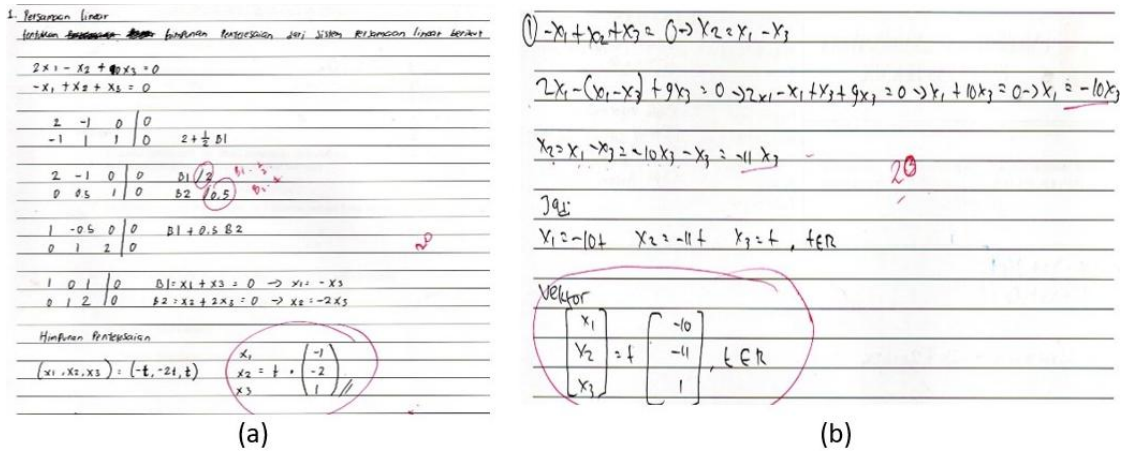 1. Persamaan linear
tentukan himpunan Penyelesaian dari sistem Persamaan linear berikut
2x1 - x2 + 0x3 = 0
-x1 + x2 + x3 = 0
2 -1 0 | 0
-1 1 1 | 0 2 + 1/2 B1
2 -1 0 | 0 B1 /2
0 0.5 1 | 0 B2 /0.5
1 -0.5 0 | 0 B1 + 0.5 B2
0 1 2 | 0
20
1 0 1 | 0 B1 = x1 + x3 = 0 → x1 = -x3
0 1 2 | 0 B2 = x2 + 2x3 = 0 → x2 = -2x3
Himpunan Penyelesaian
(x1, x2, x3) = (-t, -2t, t)
x1 -1
x2 = t • -2
x3 1 //
(a)
① -x1 + x2 + x3 = 0 → x2 = x1 - x3
2x1 - (x1 - x3) + 9x3 = 0 → 2x1 - x1 + x3 + 9x3 = 0 → x1 + 10x3 = 0 → x1 = -10x3
x2 = x1 - x3 = -10x3 - x3 = -11x3
20
Jadi
x1 = -10t x2 = -11t x3 = t, t∈R
Vektor
x1 -10
x2 = t -11 , t∈R
x3 1
(b)